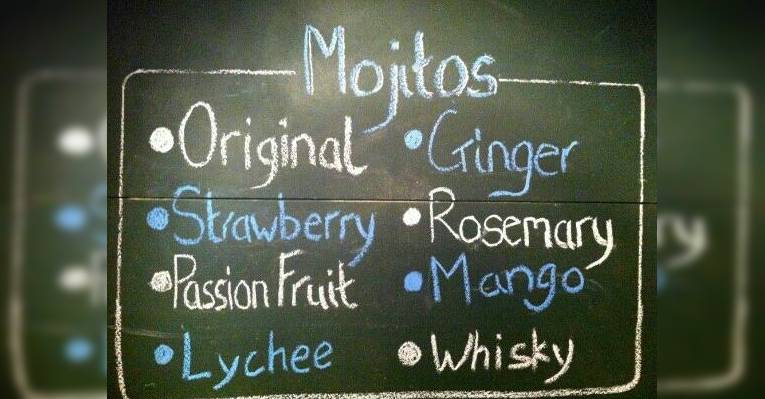 Mojitos
•Original
•Ginger
•Strawberry
•Rosemary
•Passion Fruit
•Mango
•Lychee
•Whisky